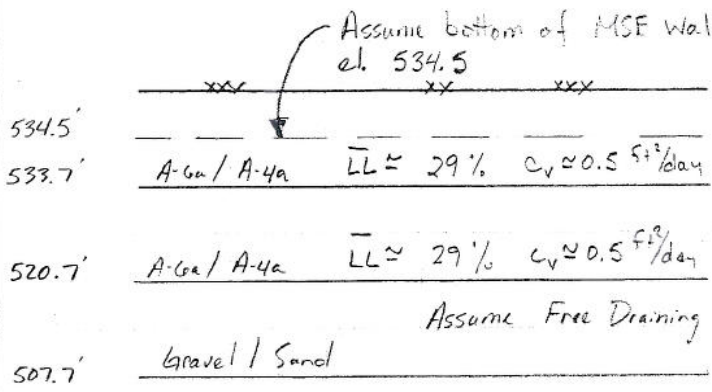 Assume bottom of MSE Wal
el. 534.5
xxx xx xxx
534.5'
533.7' A-6a / A-4a L̅L̅ ≃ 29 % cᵥ ≃ 0.5 ft²/day
520.7' A-6a / A-4a L̅L̅ ≃ 29 % cᵥ ≃ 0.5 ft²/day
Assume Free Draining
507.7' Gravel / Sand